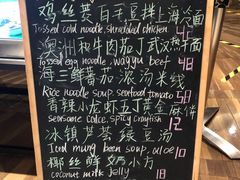 鸡丝荚白毛豆拌上海冷面
Tossed cold noodle, shredded chicken 42
澳洲和牛肉茄丁武汉热干面
Tossed egg noodle, wagyu beef 48
海三鲜番茄浓汤米线
Rice noodle soup, seafood tomato 58
香辣小龙虾五丁黄金麻饼
Sersame cake, spicy crayfish 12
冰镇芦荟绿豆汤
Iced mung been soup, aloe 10
椰丝鲜奶小方
coconut milk jelly 18